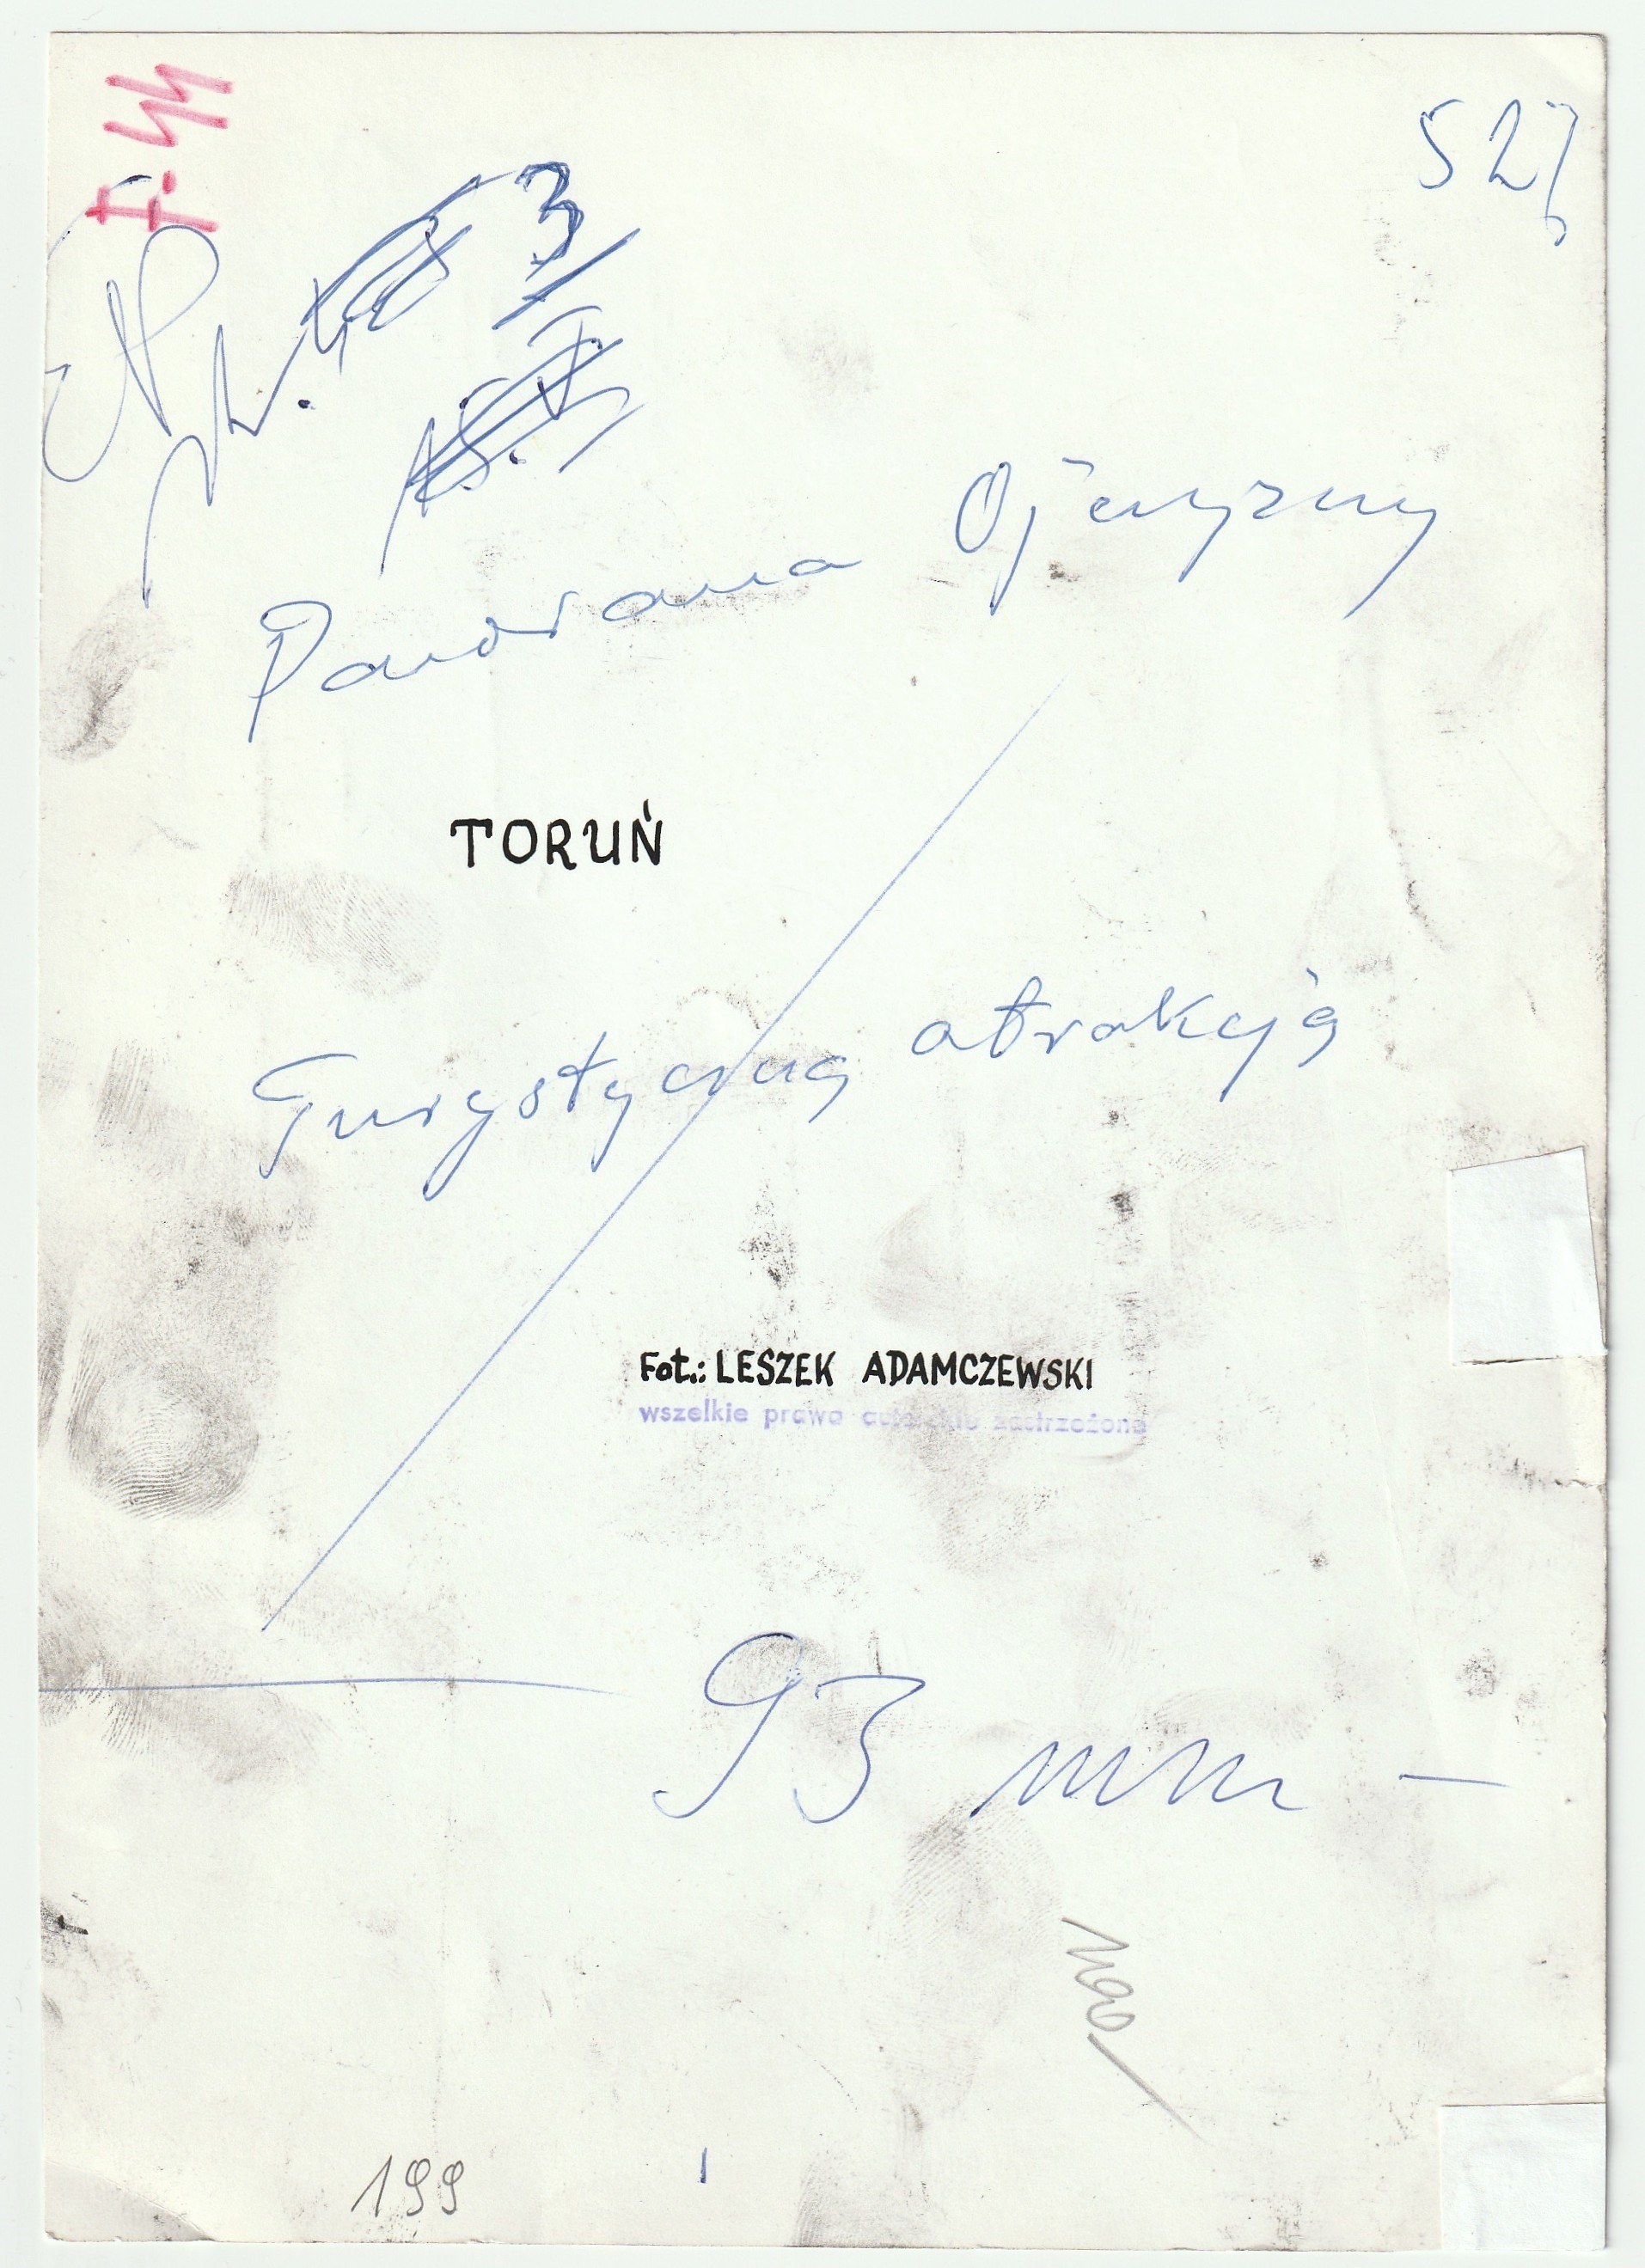 527
3
Panorama Ojczyzny
TORUŃ
Turystyczną atrakcją
Fot.: LESZEK ADAMCZEWSKI
wszelkie prawa autorskie zastrzeżone
93 mm -
199